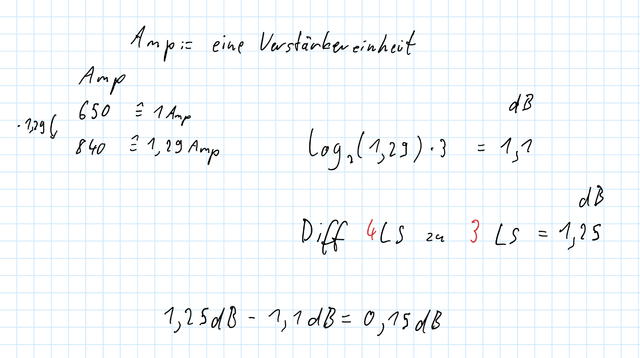 Amp:= eine Verstärkereinheit
Amp
650 ≙ 1 Amp
·1,29
840 ≙ 1,29 Amp
dB
Log₂(1,29)·3 = 1,1
dB
Diff 4LS zu 3 LS = 1,25
1,25dB - 1,1dB = 0,15dB